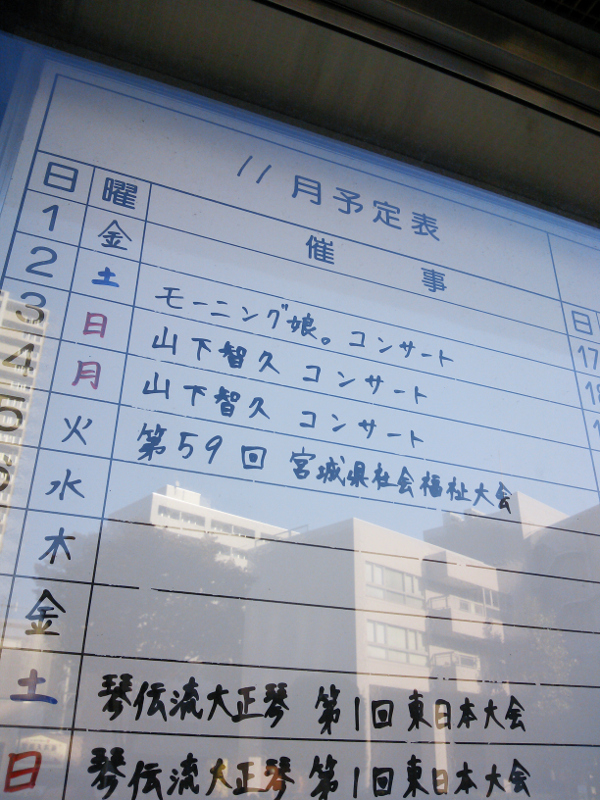 11月予定表
日 曜 催事 日
1 金 17
2 土 モーニング娘。コンサート 18
3 日 山下智久 コンサート
4 月 山下智久 コンサート
5 火 第59回 宮城県社会福祉大会
水
木
金
土 琴伝流大正琴 第1回東日本大会
日 琴伝流大正琴 第1回東日本大会